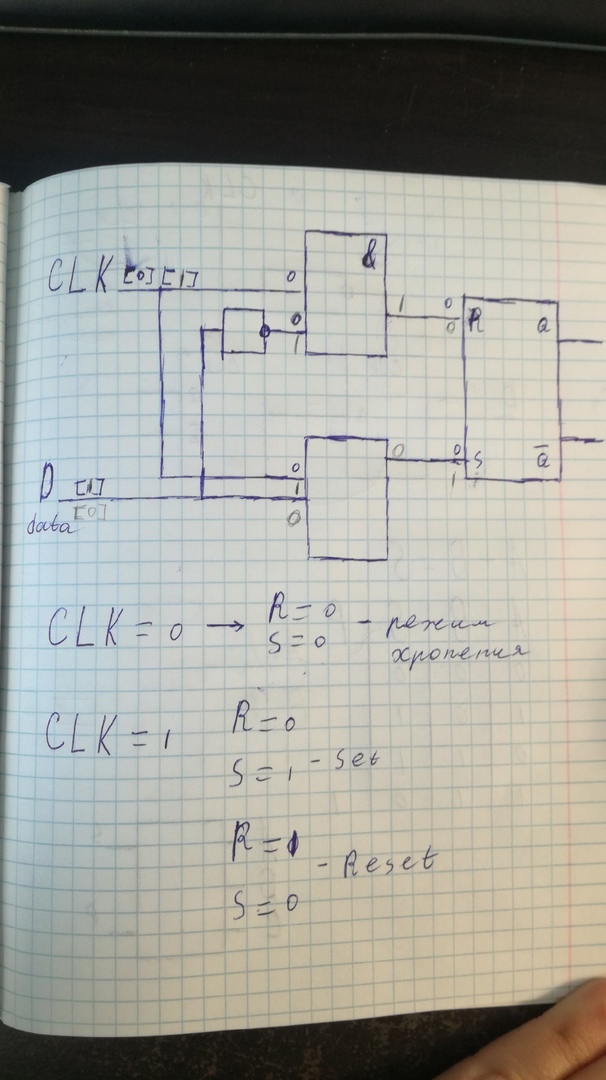 CLK [0][1] 0
&
0
1
1 0
0 R Q
D [1]
data [0]
0
1
0
0 0 S Q̅
1
CLK = 0 → R = 0
S = 0 - режим
хропения
CLK = 1 R = 0
S = 1 - Set
R = 1
- Reset
S = 0